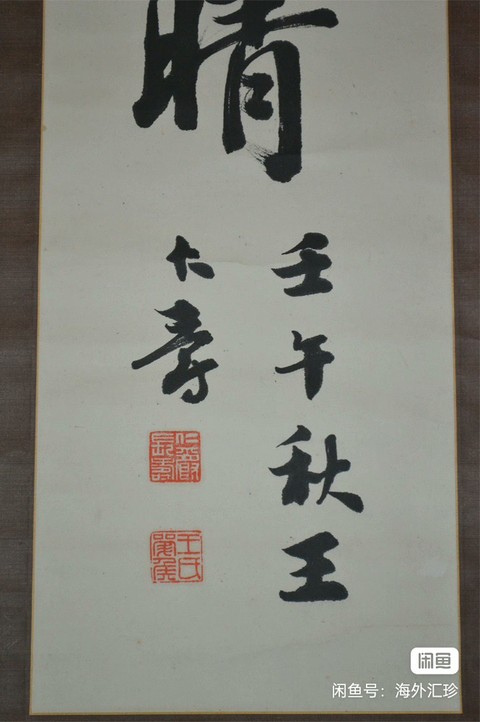 晴
壬午秋王
大壽
王氏
闲鱼
闲鱼号：海外汇珍